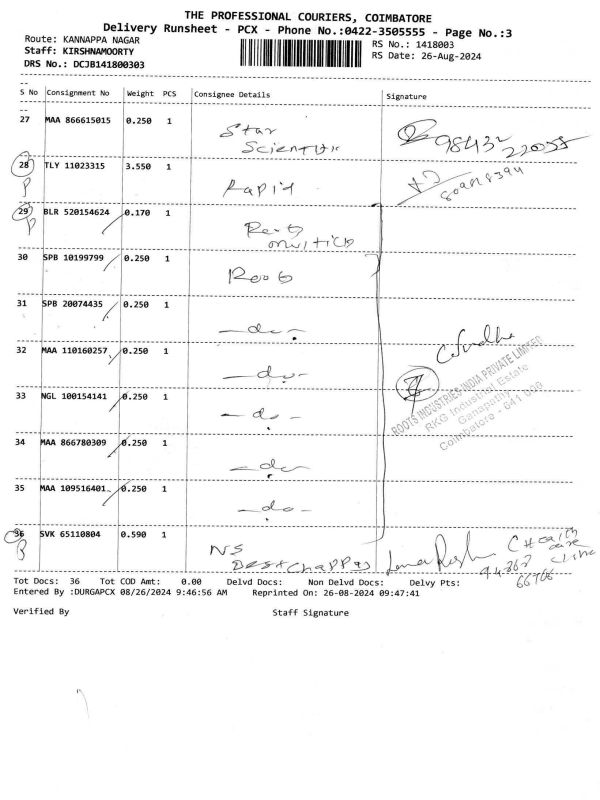 THE PROFESSIONAL COURIERS, COIMBATORE
Delivery Runsheet - PCX - Phone No.:0422-3505555 - Page No.:3
Route: KANNAPPA NAGAR
Staff: KIRSHNAMOORTY
DRS No.: DCJB141800303
RS No.: 1418003
RS Date: 26-Aug-2024
S No Consignment No Weight PCS Consignee Details Signature
27 MAA 866615015 0.250 1 Star Scientific
28 TLY 11023315 3.550 1 Rapid
P
29 BLR 520154624 0.170 1 Roots multico
P
30 SPB 10199799 0.250 1 Roots
31 SPB 20074435 0.250 1 -do-
32 MAA 110160257 0.250 1 -do-
33 NGL 100154141 0.250 1 -do-
34 MAA 866780309 0.250 1 -do-
35 MAA 109516401 0.250 1 -do-
ROOTS INDUSTRIES INDIA PRIVATE LIMITED
RKG Industrial Estate
Ganapathy
Coimbatore - 641 006
36 SVK 65110804 0.590 1 NS
P
Tot Docs: 36 Tot COD Amt: 0.00 Delvd Docs: Non Delvd Docs: Delvy Pts:
Entered By :DURGAPCX 08/26/2024 9:46:56 AM Reprinted On: 26-08-2024 09:47:41
Verified By Staff Signature